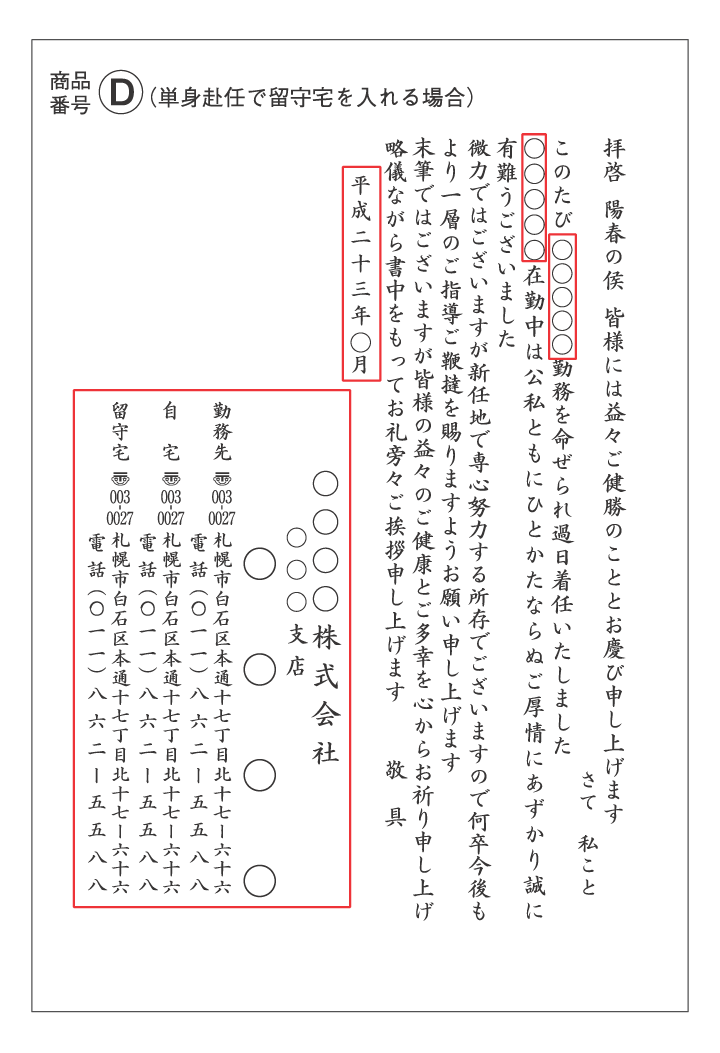 商品番号 D (単身赴任で留守宅を入れる場合)
拝啓 陽春の侯 皆様には益々ご健勝のこととお慶び申し上げます
さて 私こと
このたび○○○○○勤務を命ぜられ過日着任いたしました
○○○○○在勤中は公私ともにひとかたならぬご厚情にあずかり誠に
有難うございました
微力ではございますが新任地で専心努力する所存でございますので何卒今後も
より一層のご指導ご鞭撻を賜りますようお願い申し上げます
末筆ではございますが皆様の益々のご健康とご多幸を心からお祈り申し上げ
略儀ながら書中をもってお礼旁々ご挨拶申し上げます 敬具
平成二十三年○月
○○○○株式会社
○○○支店
○○○○
勤務先 〠003-0027 札幌市白石区本通十七丁目北十七ー六十六
電話(○一一)八六二ー五五八八
自宅 〠003-0027 札幌市白石区本通十七丁目北十七ー六十六
電話(○一一)八六二ー五五八八
留守宅 〠003-0027 札幌市白石区本通十七丁目北十七ー六十六
電話(○一一)八六二ー五五八八